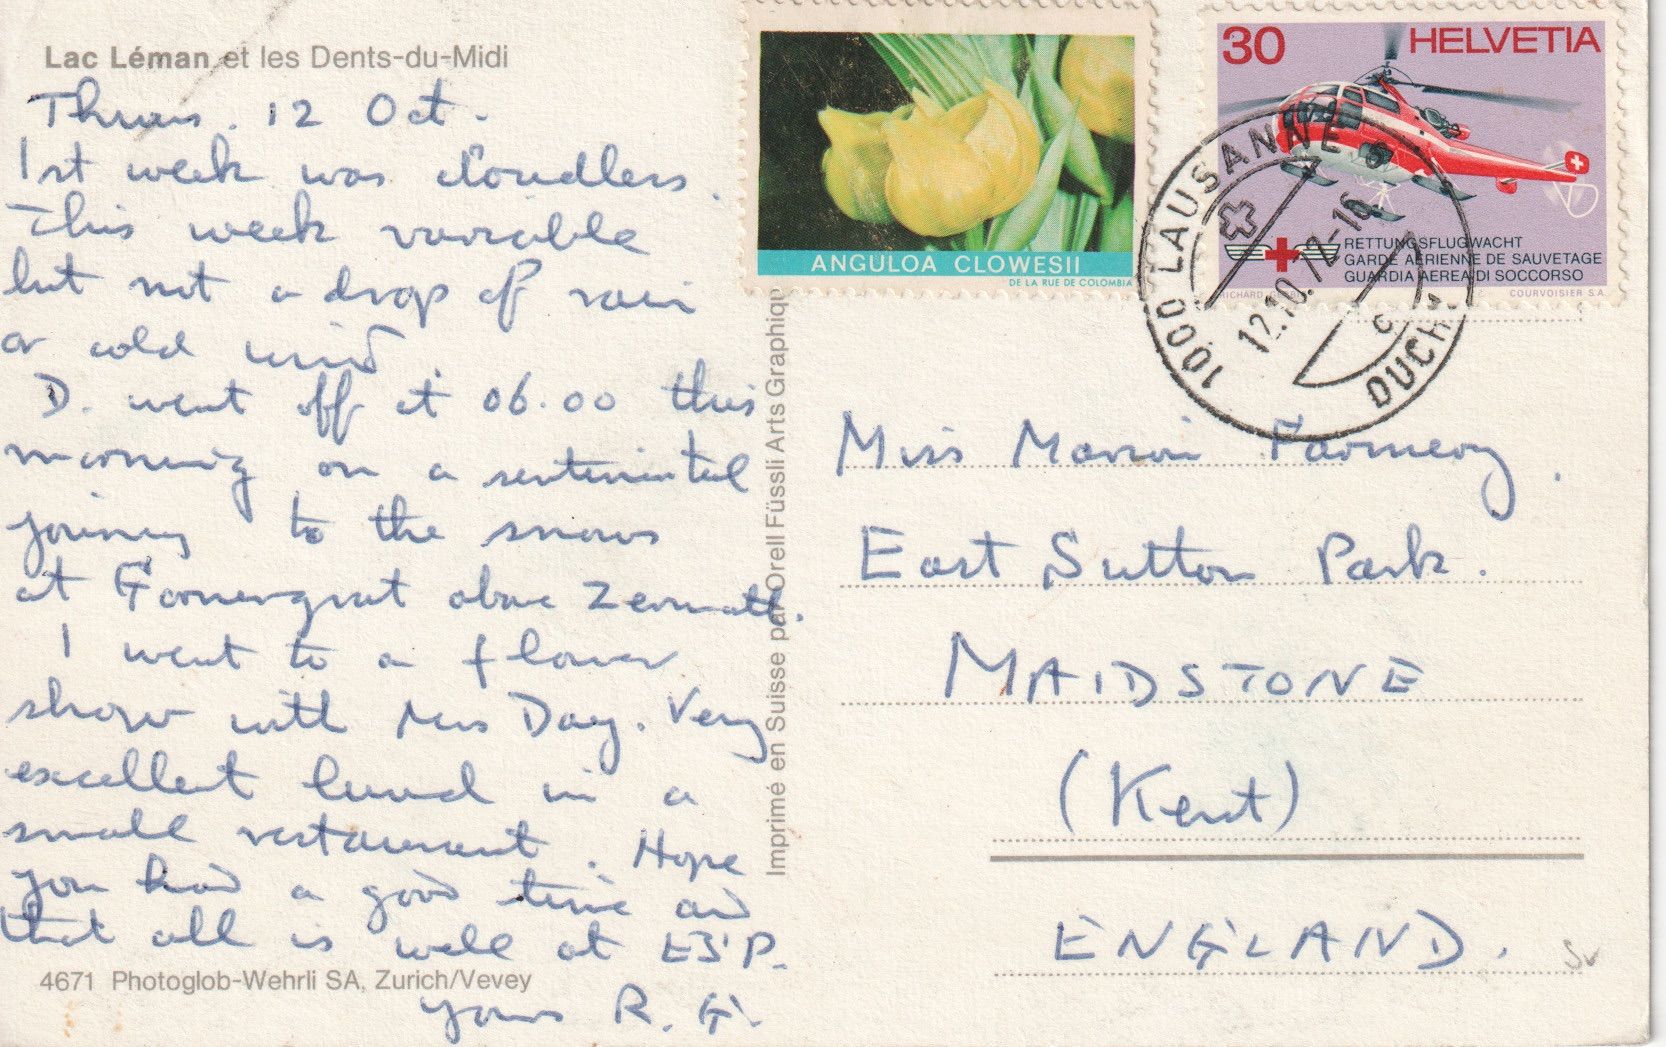 Lac Léman et les Dents-du-Midi
Thurs. 12 Oct.
1st week was cloudless.
This week variable
but not a drop of rain
or cold wind.
D. went off at 06.00 this
morning on a sentimental
journey to the snows
at Gornergrat above Zermatt.
I went to a flower
show with Mrs Day. Very
excellent lunch in a
small restaurant. Hope
you had a good time and
that all is well at ESP.
4671 Photoglob-Wehrli SA, Zurich/Vevey
yours R. G.
Imprimé en Suisse par Orell Füssli Arts Graphiqu
ANGULOA CLOWESII
DE LA RUE DE COLOMBIA
30 HELVETIA
RETTUNGSFLUGWACHT
GARDE AÉRIENNE DE SAUVETAGE
GUARDIA AEREA DI SOCCORSO
COURVOISIER S.A.
1000 LAUSANNE
12.10.72-16
OUCHY
Miss Marion Farmery.
East Sutton Park.
MAIDSTONE
(Kent)
ENGLAND.